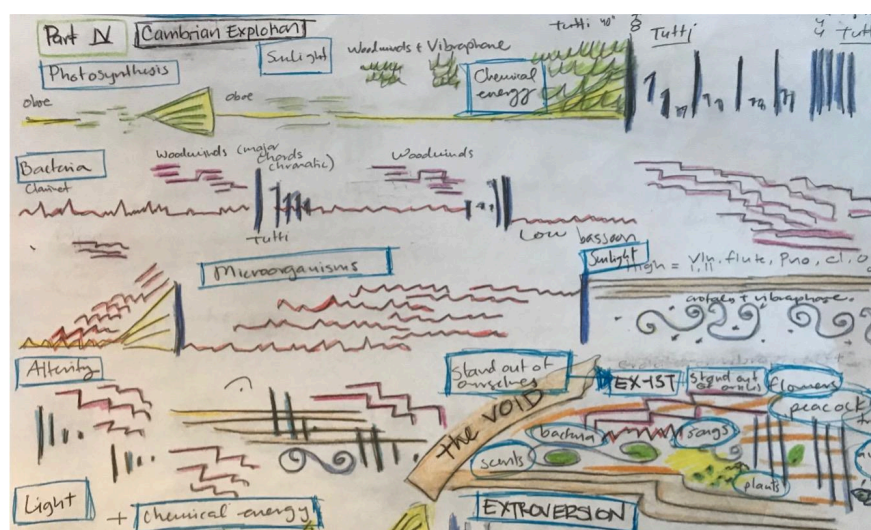 Part IV
Cambrian Explotion
Photosynthesis
Sunlight
Woodwinds + Vibraphone
tutti 40"
Tutti
Chemical
energy
oboe
oboe
Bacteria
Woodwinds (major
chords
chromatic)
Woodwinds
Clarinet
Tutti
Low bassoon
Microorganisms
Sunlight
High = Vln. flute, Pno, cl.
I, II
crotales + vibraphone.
Alterity
Stand out of
ourselves
the VOID
EX-IST
Stand out
flowers
peacock
bacteria
songs
scents
plants
Light
+ Chemical energy
EXTROVERSION